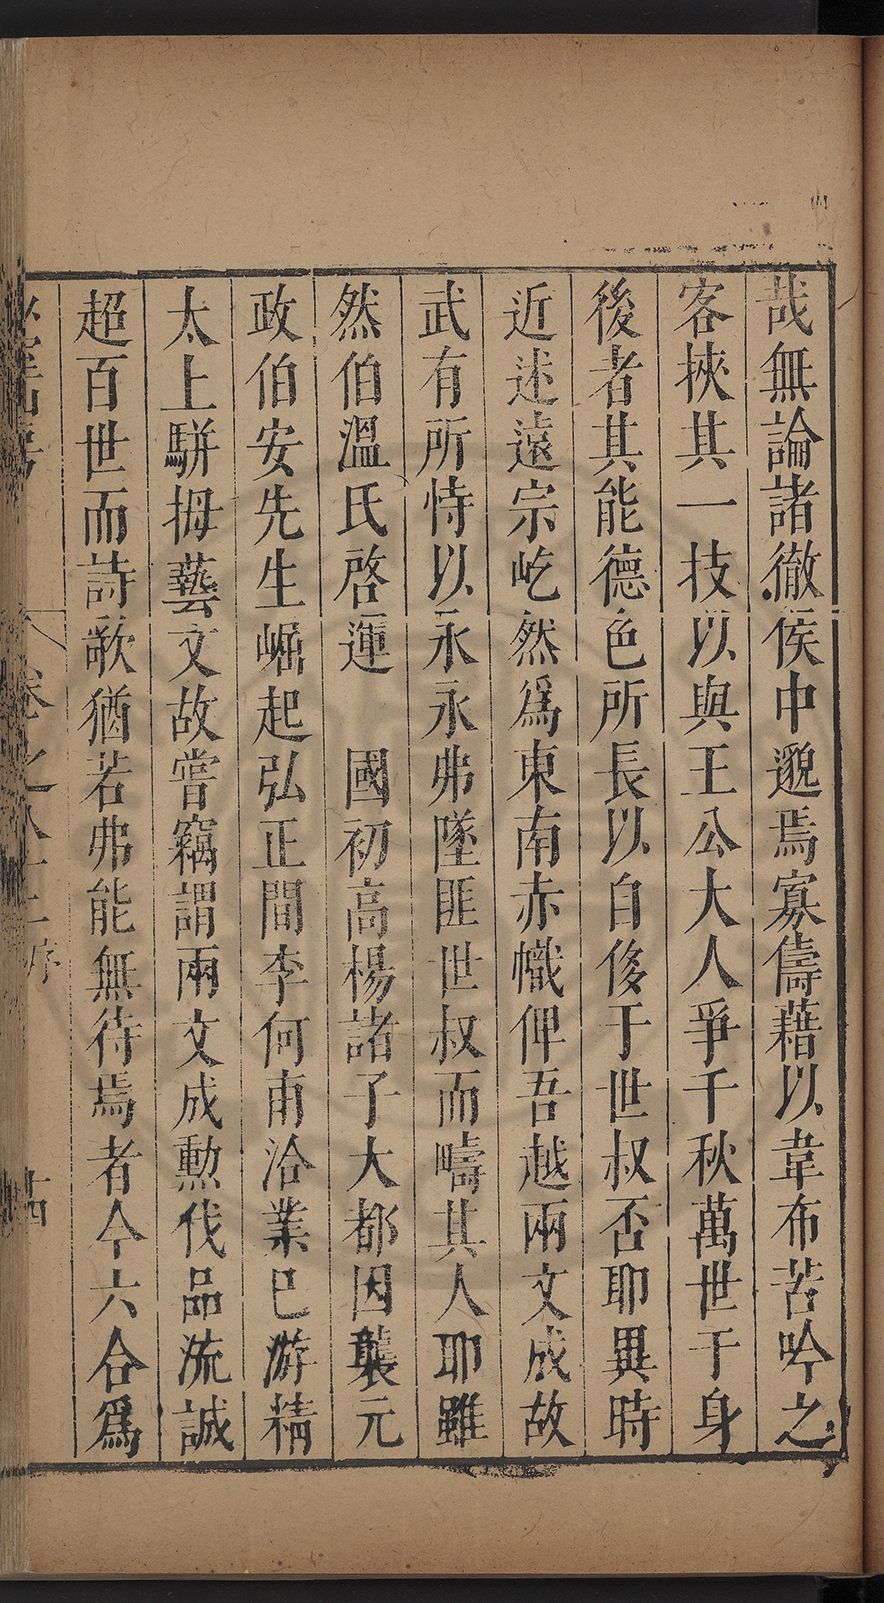 哉無論諸徹侯中邈焉寡儔藉以韋布苦吟之
客挾其一技以與王公大人爭千秋萬世于身
後者其能德色所長以自俊于世叔否耶異時
近述遠宗屹然爲東南赤幟俾吾越兩文成故
武有所恃以永永弗墜匪世叔而疇其人耶雖
然伯溫氏啓運　國初高楊諸子大都因襲元
政伯安先生崛起弘正間李何甫洽業巳游精
太上駢拇藝文故嘗竊謂兩文成勲伐品流誠
超百世而詩歌猶若弗能無待焉者今六合爲
卷之八十二序